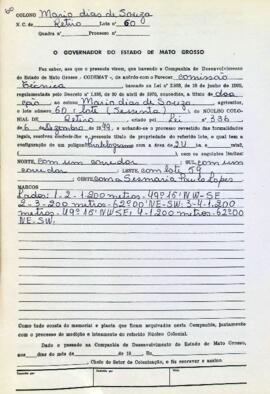 60
COLONO Mario dias de Souza
N. C. de Retiro Lote n.º 60
Quadra n.º Processo n.º
O GOVERNADOR DO ESTADO DE MATO GROSSO
Faz saber, aos que o presente virem, que havendo a Companhia de Desenvolvimento
do Estado de Mato Grosso - CODEMAT -, de acordo com o Parecer comissão
Técnica baseado na Lei
regulamentado pelo Decreto n.º 1.
ção ao Mario dias de Souza, agricultor,
o lote n.º 60: lote (Sessenta) do NÚCLEO COLO-
NIAL DE Retiro criado pela Lei n.º 336
de 6 de dezembro de 1949, e achando-se o processo revestido das formalidades
legais, resolveu
configuração de um polígono com a área de 24
com os seguintes limites:
NORTE com um corredor; SUL com um
corredor; com lote 59
OESTE com a Sesmaria Paulo Lopes
MARCOS
Lados: 1-2-1.200 metros-49º15' NW-SE
2-3-200 metros-62º00' NE-SW: 3-4-1.200
metros: 49º15' NW SE: 4-1.200 metros: 62º00
NE-SW:
Como tudo consta do memorial e planta que ficam arquivados nesta Companhia, juntamente
com o processo de medição e loteamento do referido Núcleo Colonial.
Dado e passado na Companhia de Desenvolvimento do Estado de Mato Grosso,
aos dias do mês de de 19 Eu,
Chefe do Setor de Colonização, o fiz escrever e assino.